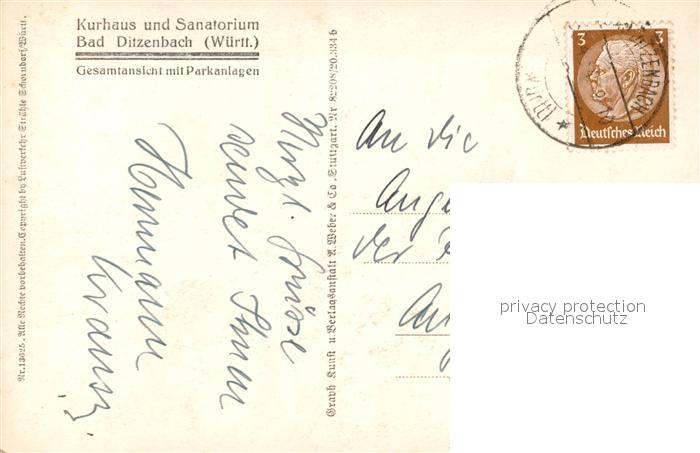 Kurhaus und Sanatorium
Bad Ditzenbach (Württ.)
Gesamtansicht mit Parkanlagen
Nr. 13625. Alle Rechte vorbehalten. Copyright by Luftverkehr Strähle Schorndorf/Württ.
Herzl. Grüße
sendet Ihnen
Hermann
Graph. Kunst u. Verlagsanstalt A. Weber & Co. Stuttgart. Nr 82208/20.334 b
An die
Ange
der
3 3
Deutsches Reich
DITZENBACH
(WÜRTT
privacy protection
Datenschutz